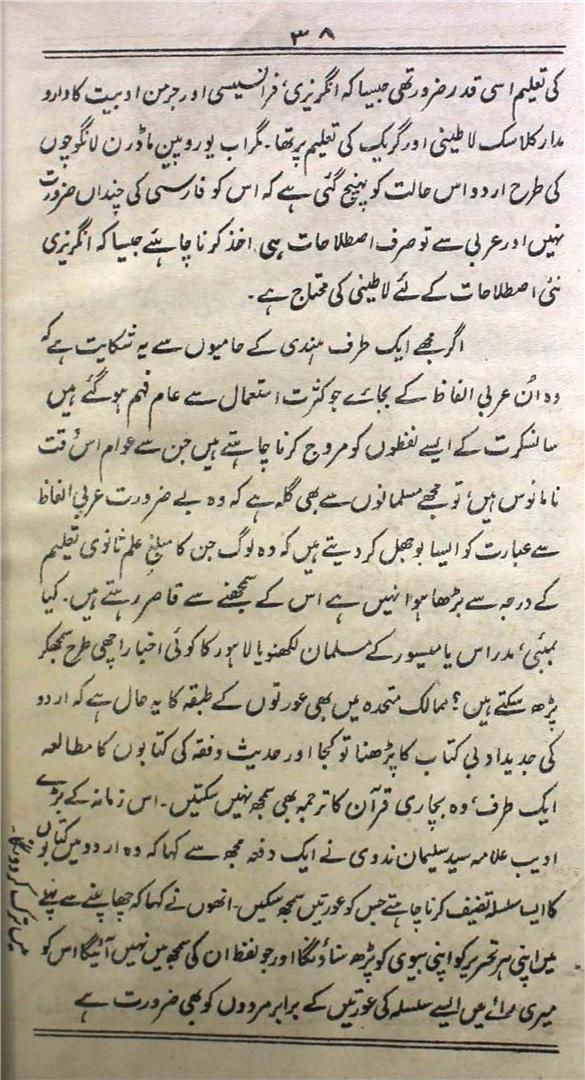 ۳۸
کی تعلیم اسی قدر ضرور تھی جیسا کہ انگریزی، فرانسیسی اور جرمن ادبیت کا دارو
مدار کلاسک لاطینی اور گریک کی تعلیم پر تھا۔ مگر اب یوروپین ماڈرن لانگوجوں
کی طرح اردو اس حالت کو پہنچ گئی ہے کہ اس کو فارسی کی چنداں ضرورت
نہیں اور عربی سے تو صرف اصطلاحات ہی اخذ کرنا چاہئے جیسا کہ انگریزی
نئی اصطلاحات کے لئے لاطینی کی محتاج ہے۔
اگر مجھے ایک طرف ہندی کے حامیوں سے یہ شکایت ہے کہ
وہ اُن عربی الفاظ کے بجائے جو کثرت استعمال سے عام فہم ہو گئے ہیں
سانسکرت کے ایسے لفظوں کو مروج کرنا چاہتے ہیں جن سے عوام اس وقت
نامانوس ہیں، تو مجھے مسلمانوں سے بھی گلہ ہے کہ وہ بے ضرورت عربی الفاظ
سے عبارت کو ایسا بوجھل کر دیتے ہیں کہ وہ لوگ جن کا مبلغ علم ثانوی تعلیم
کے درجہ سے بڑھا ہوا نہیں ہے اس کے سمجھنے سے قاصر رہتے ہیں۔ کیا
بمبئی، مدراس یا میسور کے مسلمان لکھنو یا لاہور کا کوئی اخبار اچھی طرح سمجھکر
پڑھ سکتے ہیں؟ ممالک متحدہ میں بھی عورتوں کے طبقہ کا یہ حال ہے کہ اردو
کی جدید ادبی کتاب کا پڑھنا تو کجا اور حدیث و فقہ کی کتابوں کا مطالعہ
ایک طرف، وہ بچاری قرآن کا ترجمہ بھی سمجھ نہیں سکتیں۔ اس زمانہ کے بڑے
ادیب علامہ سید سلیمان ندوی نے ایک دفعہ مجھ سے کہا کہ وہ اردو میں کتابوں
کا ایسا سلسلہ تصنیف کرنا چاہتے جس کو عورتیں سمجھ سکیں۔ انھوں نے کہا کہ چھاپنے سے پہلے
میں اپنی ہر تحریر کو اپنی بیوی کو پڑھ سناؤنگا اور جو لفظ ان کی سمجھ میں نہیں آئیگا اس کو
میں ترک کر دونگا۔
میری رائے میں ایسے سلسلہ کی عورتیں کے برابر مردوں کو بھی ضرورت ہے